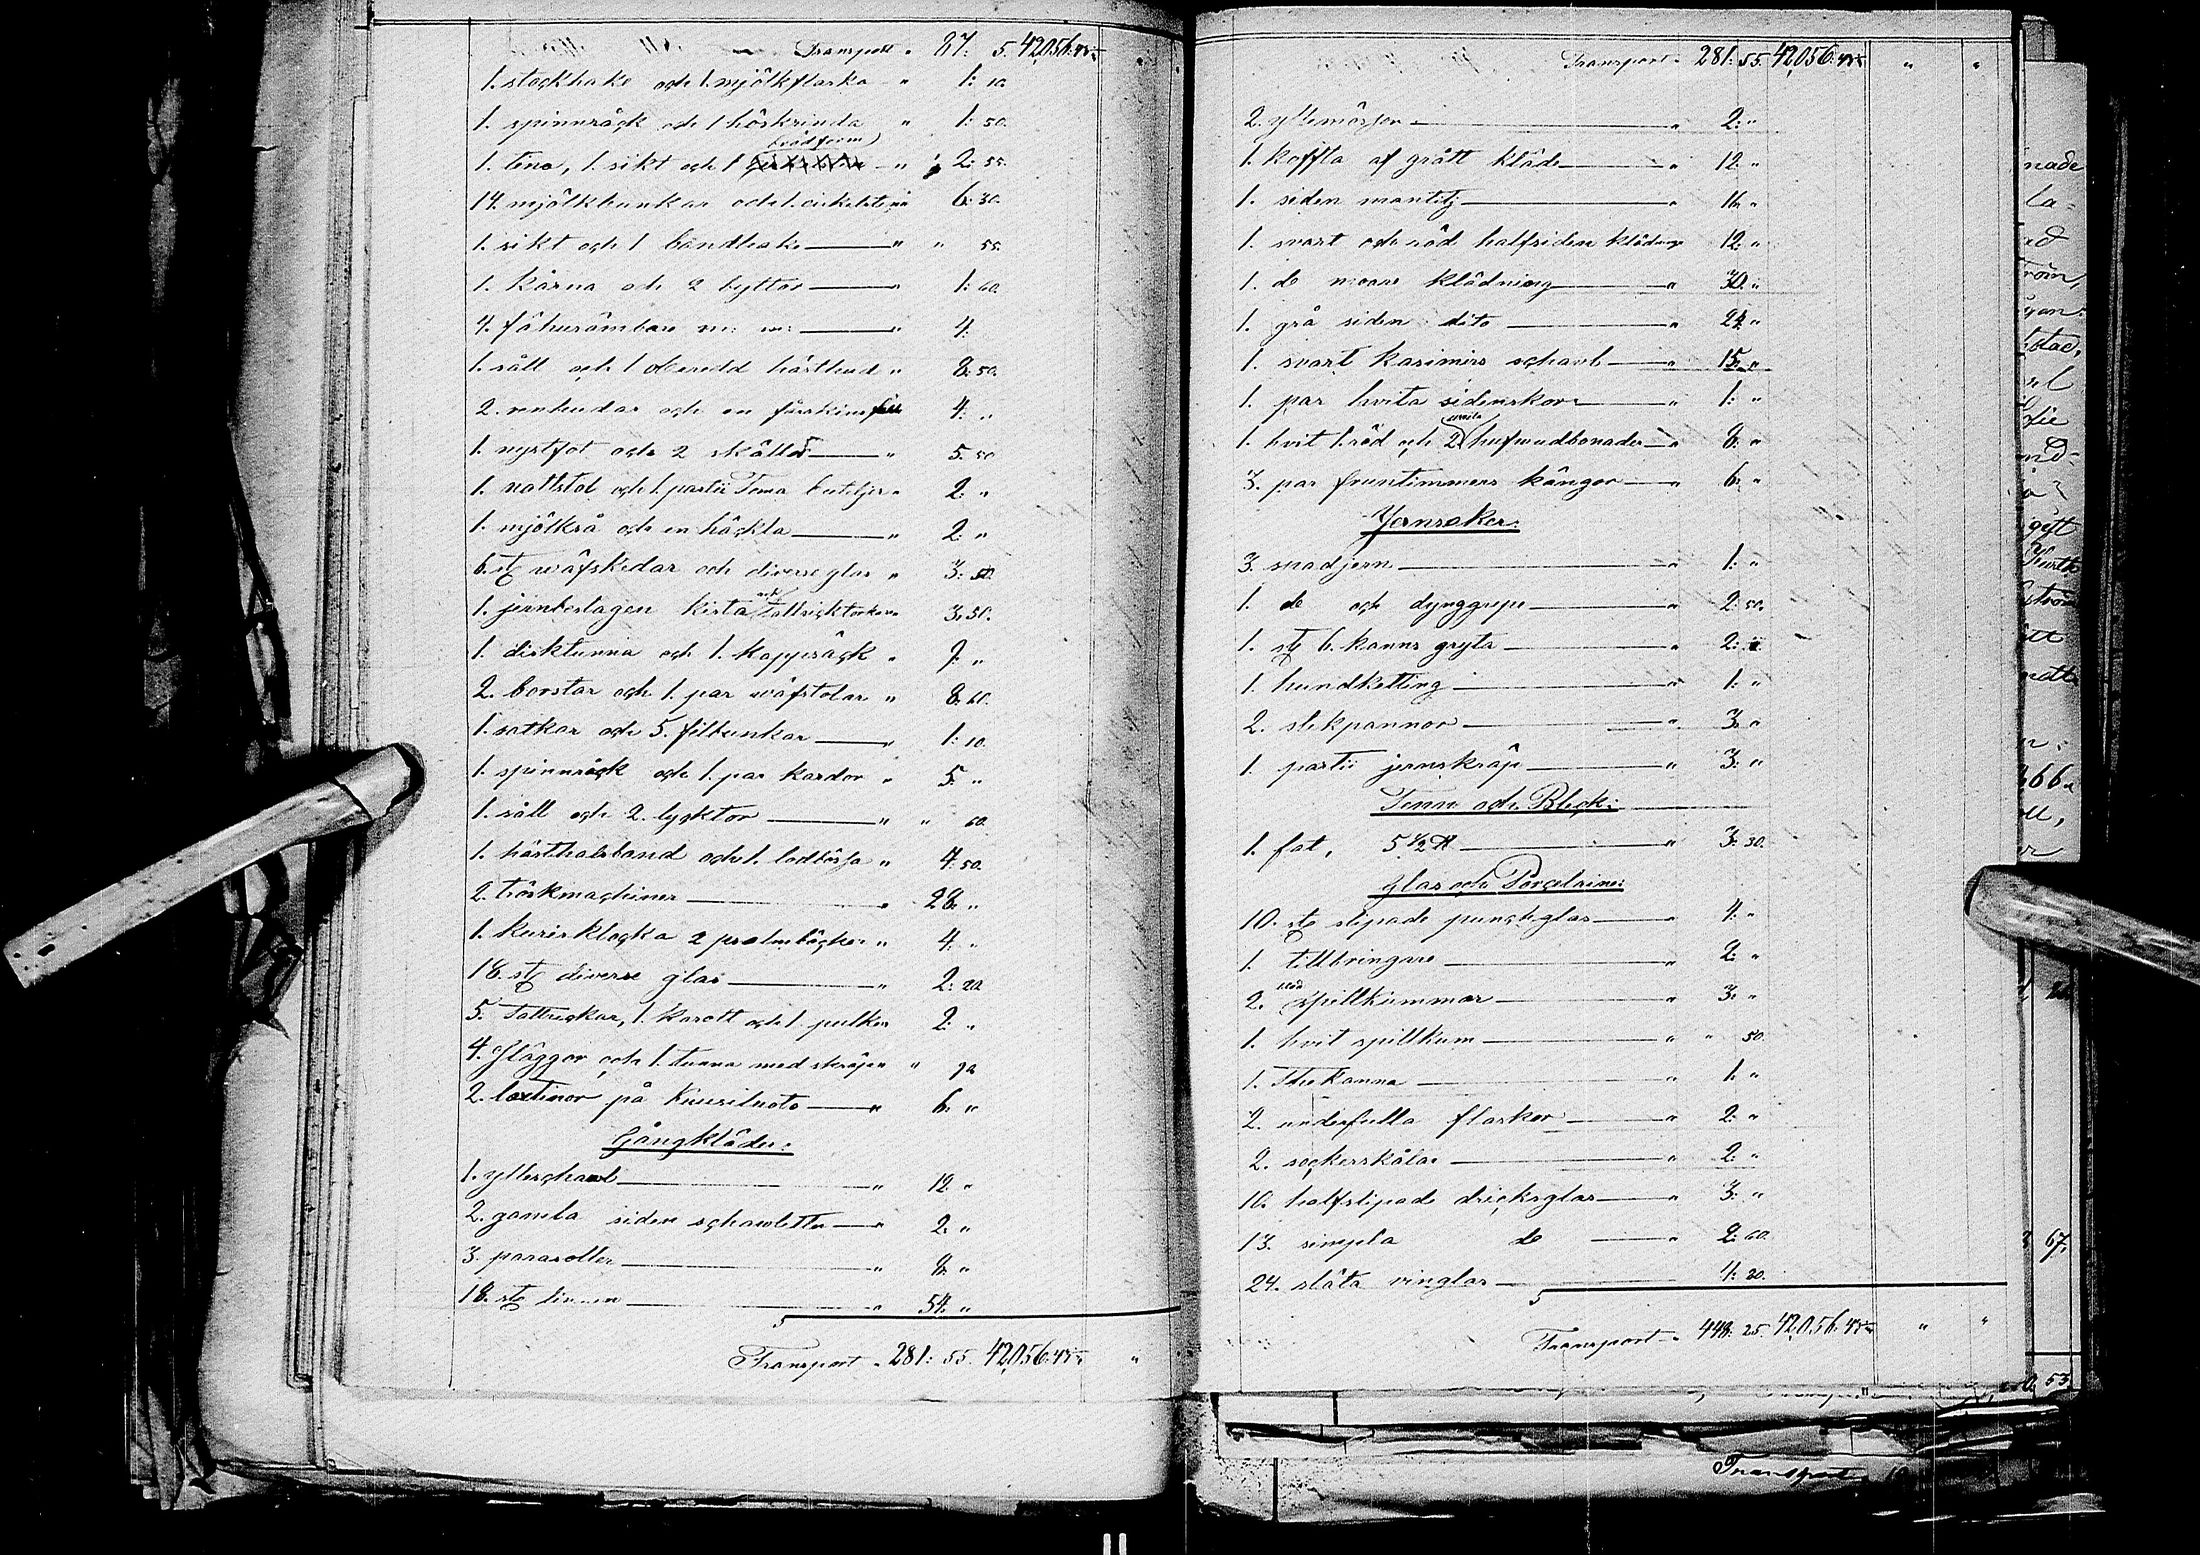 Transport " 87. 5. 42,056.45
1. stockhake och 1. mjölkflaska " 1: 10.
1. spinnråck och 1 höskrinda " 1: 50.
brödform
1. tena, 1. sikt och 1 " 2: 55.
14. mjölkbunkar och 1. " 6: 30.
1. sikt och 1 bandhake " " 55.
1. kärna och 2 byttor " 1: 60.
4. fähusämbare m: m: " 4.
1. såll och 1 oberedd hästhud " 8: 50.
2. renhudar och en fårskinsfäll 4: "
1. nystfot och 2 skållor " 5. 50
1. nattstol och 1. partie Toma buteljer " 2: "
1. mjölkså och en häckla " 2: "
6. st wäfskedar och diverse glas " 3: 50.
1. jernbeslagen kista och Tallricktorkare 3. 50.
1. disktunna och 1. kappsäck " 7. "
2. borstar och 1. par wäfstolar " 8. 60.
1. satkar och 5. filbunkar " 1: 10.
1. spinnråck och 1. par kardor " 5. "
1. såll och 2. lycktor " " 60.
1. hästhalsband och 1. lodbössa " 4: 50.
2. tröskmachiner " 28. "
1. kurirklocka 2 psalmböcker " 4: "
18. st diverse glas " 2: 20
5. Tallrickar, 1. karott och 1. pulka 2: "
4. släggor och 1. tunna med skräp " " 90
2. laxtinor på Knusilnoto " 6. "
Gångkläder:
1. ylleschawl " 12. "
2. gamla siden schawletter " 2: "
3. parasoller " 8. "
18. st linnen " 54. "
5
Transport " 281: 55. 42,056.45 "
Transport " 281: 55. 42,056:45 " "
2. yllemössor " 2: "
1. koffta af grått kläde " 12: "
1. siden mantilj " 16. "
1. svart och röd halfsiden klädning 12: "
1. de moare klädning " 30. "
1. grå siden dito " 24. "
1. svart kasimirs schawl " 15. "
1. par hvita sidenskor " 1: "
1. hvit 1. röd och 2 hufwudbonader " 8. "
3. par fruntimmers kängor " 6. "
Jernsaker:
3. snadjern " 1: "
1. de och dynggrepe " 2: 50.
1. st 6. kanns gryta " 2: "
1. hundketting " 1: "
2. stekpannor " 3. "
1. partie jernskräp " 3: "
Tenn och Bleck:
1. fat, 5 1/2 ℔ " 3: 30.
Glas och Porcelaine:
10. st slipade punchglas " 4. "
1. tillbringare " 2: "
röd
2. spillkummar " 3. "
1. hvit spillkum " " 50.
1. Thekanna " 1. "
2. underfulla flaskor " 2: "
2. sockerskålar " 2: "
10. halfslipade dricksglas " 3: "
13. simpla de " 2: 60.
24. släta vinglas " 4: 80.
5
Transport " 448: 25. 42,056.45 " "
Transport